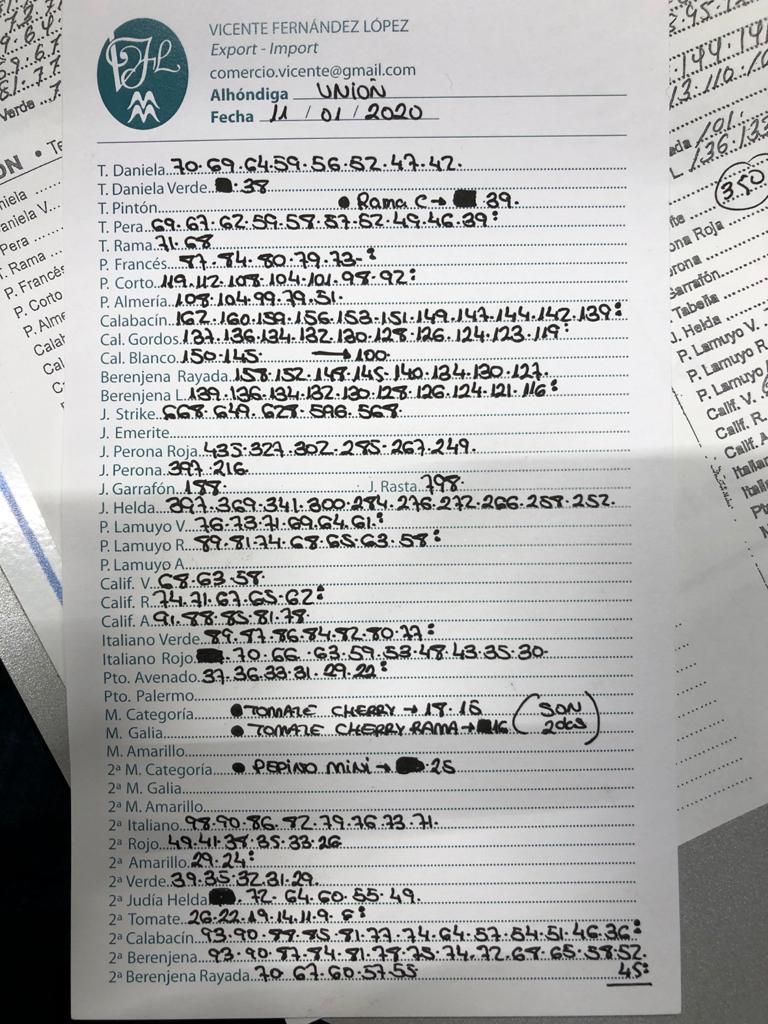 VICENTE FERNÁNDEZ LÓPEZ
Export - Import
comercio.vicente@gmail.com
Alhóndiga UNION
Fecha 11 / 01 / 2020
T. Daniela 70.69.64.59.56.52.47.42.
T. Daniela Verde .38
T. Pintón • Rama C → 39.
T. Pera 69.67.62.59.58.57.52.49.46.39:
T. Rama 71.68
P. Francés 87.84.80.79.73-:
P. Corto 119.112.108.104.101.98.92:
P. Almería 108.104.99.79.51.
Calabacín 162.160.159.156.153.151.149.147.144.142.139:
Cal. Gordos 137.136.134.132.130.128.126.124.123.119:
Cal. Blanco 150.145. → 100.
Berenjena Rayada 158.152.148.145.140.134.130.127.
Berenjena L. 139.136.134.132.130.128.126.124.121.116:
J. Strike 668.649.627.598.568.
J. Emerite
J. Perona Roja 435.327.302.285.267.249.
J. Perona 397.216.
J. Garrafón 188. J. Rasta 798.
J. Helda 397.369.341.300.284.276.272.266.258.252.
P. Lamuyo V. 76.73.71.69.64.61:
P. Lamuyo R. 89.81.74.68.65.63.58:
P. Lamuyo A.
Calif. V. 68.63.58.
Calif. R. 74.71.67.65.62:
Calif. A. 91.88.85.81.78.
Italiano Verde 89.87.86.84.82.80.77:
Italiano Rojo .70.66.63.59.53.48.43.35.30.
Pto. Avenado 37.36.33.31.29.22:
Pto. Palermo
M. Categoría • TOMATE CHERRY → 18.15 (SON
M. Galia • TOMATE CHERRY RAMA → 16 20CS)
M. Amarillo
2ª M. Categoría • PEPINO MINI → .25
2ª M. Galia
2ª M. Amarillo
2ª Italiano 98.90.86.82.79.76.73.71.
2ª Rojo 49.41.38.35.33.26
2ª Amarillo 29.24:
2ª Verde 39.35.32.31.29.
2ª Judía Helda .72.64.60.55.49.
2ª Tomate 26.22.19.14.11.9.6:
2ª Calabacín 93.90.88.85.81.77.74.64.57.54.51.46.36:
2ª Berenjena 93.90.87.84.81.78.75.74.72.68.65.58.52.
45:
2ª Berenjena Rayada 70.67.60.57.55